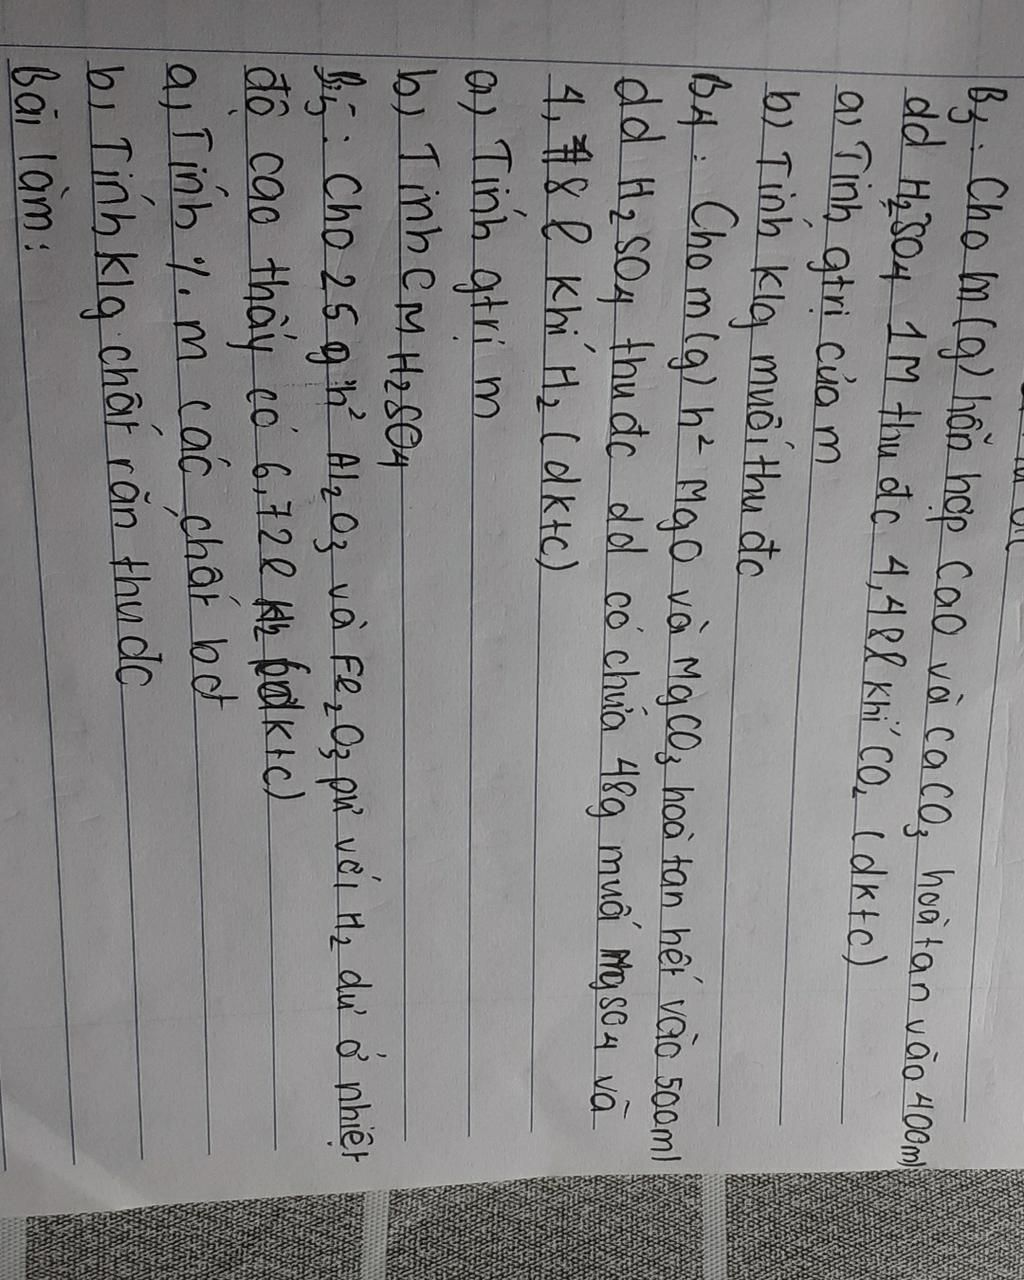 B3: Cho m(g) hỗn hợp CaO và CaCO3 hoà tan vào 400ml
dd H2SO4 1M thu đc 4,48l khí CO2 (dktc)
a) Tính gtrị của m
b) Tính klg muối thu đc
B4: Cho m(g) h² MgO và MgCO3 hoà tan hết vào 500ml
dd H2SO4 thu đc dd có chứa 48g muối MgSO4 và
4,48 l khí H2 (dktc)
a) Tính gtrị m
b) Tính CM H2SO4
B5: Cho 25g h² Al2O3 và Fe2O3 pư với H2 dư ở nhiệt
độ cao thấy có 6,72l H2 (dktc)
a) Tính % m các chất bđ
b) Tính klg chất rắn thu đc
Bài làm: